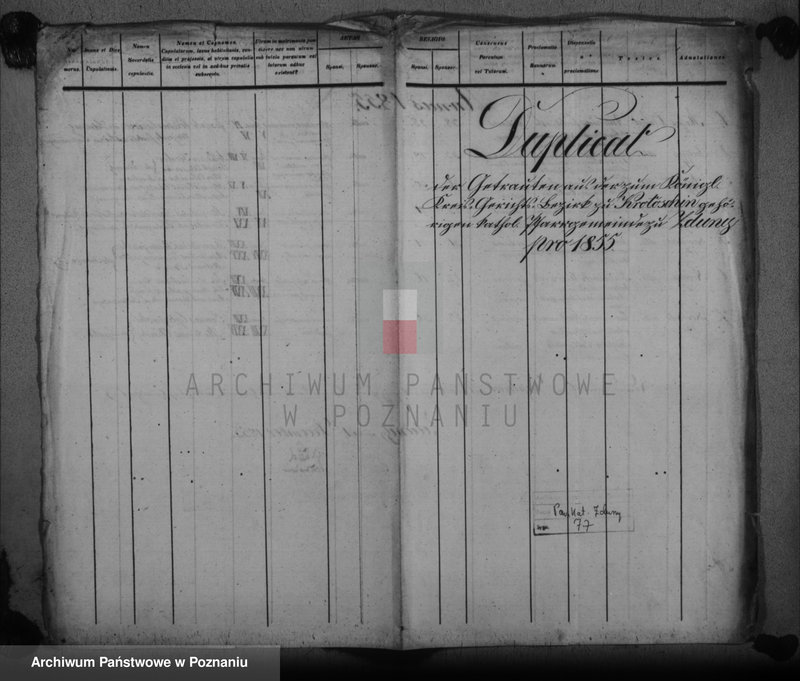 Nu-
merus.
Annus et Dies
Copulationis.
Nomen
Sacerdotis
copulantis.
Nomen et Cognomen
Copulatorum, locus habitationis, con-
ditio et professio, at utrum copulatio
in ecclesia vel in aedibus privatis
subsecuta.
AETAS
Sponsi.
Sponsae.
RELIGIO
Sponsi.
Sponsae.
Consensus
Parentum
vel Tutorum.
Proclamatio
Bannorum.
Dispensatio
a
proclamatione
Testes.
Adnotationes.
Duplicat
der Getrauten aus der zum Königl.
Kreis-Gerichts-Bezirk zu Krotoschin gehö-
rigen kathol. Pfarrgemeinde zu Zduny
pro 1855.
ARCHIWUM PAŃSTWOWE
W POZNANIU
Par. Kat. Zduny
77
Archiwum Państwowe w Poznaniu